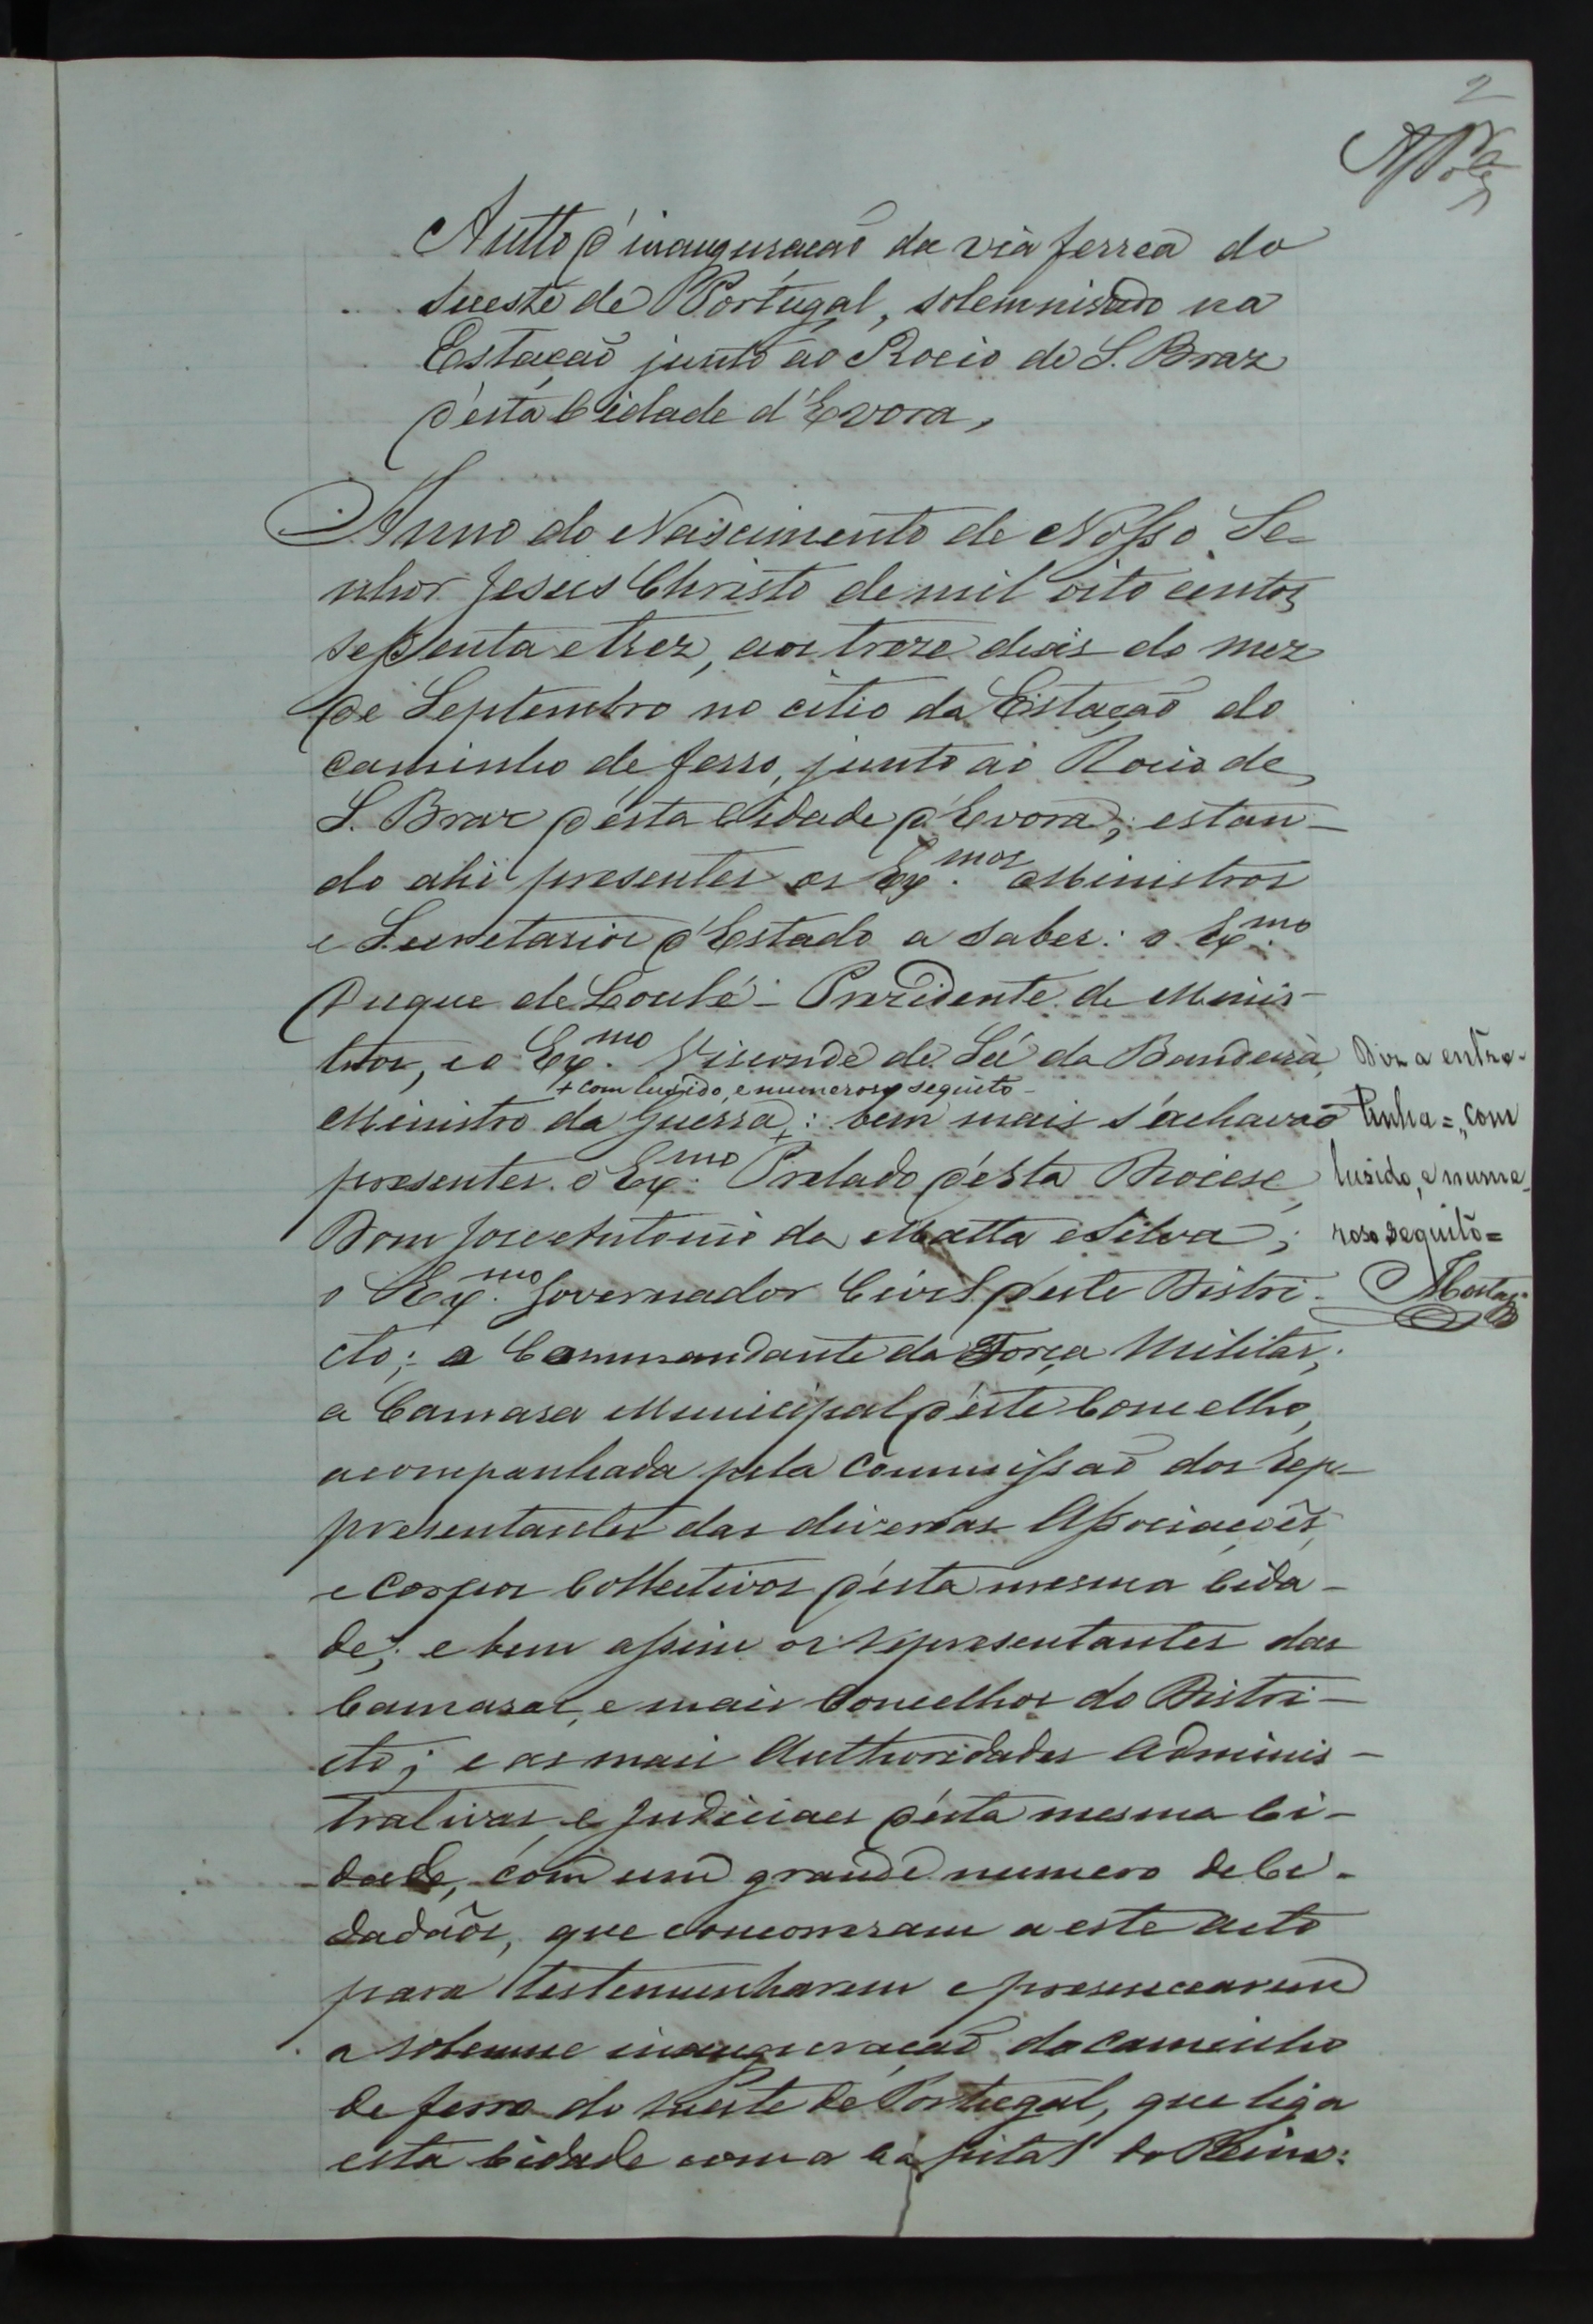 2
Autto d'inauguração da via ferrea do
Sueste de Portugal, solemnisado na
Estação junto ao Rocio de S. Braz
d'esta Cidade d'Evora,
Anno do Nascimento de Nosso Se-
nhor Jesus Christo de mil oito centos
sessenta e trez, aos treze dias do mez
de Septembro no citio da Estação do
caminho de ferro, junto ao Rocio de
S. Braz d'esta Cidade d'Evora; estan-
do ahi presentes os Ex.mos Ministros
e Secretarios d'Estado a saber: o Ex.mo
Duque de Loulé - Prezidente de Minis-
tros, e o Ex.mo Visconde de Sá da Bandeira
+ com lusido, e numeroso seguito -
Ministro da Guerra+: bem mais s'achavão
presentes o Ex.mo Prelado d'esta Diocese,
Dom Jose Antonio da Matta e Silva;
o Ex.mo Governador Civil d'este Distri-
cto; o Commandante da Força Militar;
a Camara Municipal d'este Concelho,
acompanhada pela Commissão dos rep-
presentantes das diversas Associações,
e Corpos Collectivos d'esta mesma Cida-
de; e bem assim os representantes das
Camaras, e mais Concelhos do Distri-
cto; e as mais Authoridades Adminis-
trativas, e Judiciaes d'esta mesma Ci-
dade, com um grande numero de Ci-
dadãos, que concorreram a este acto
para testemunharem e presencearem
a solemne inauguração do caminho
de ferro do sueste de Portugal, que liga
esta Cidade com a Capital do Reino:
Diz a entre-
linha =, com
lusido, e nume-
roso seguito =